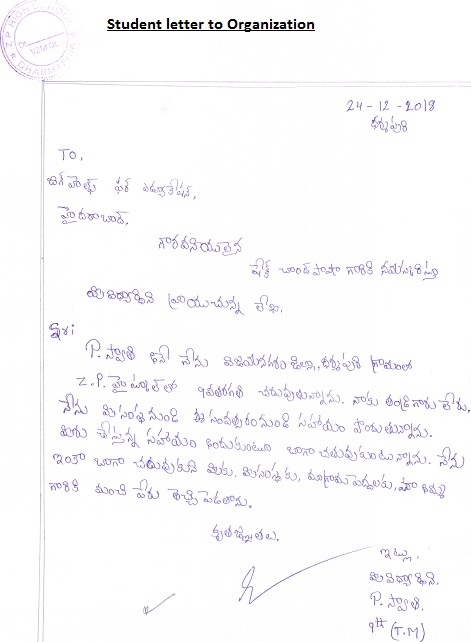 Student letter to Organization
Z.P. HIGH SCHOOL
Dt.
VZM.Dt.
DHARMAPURI
24-12-2018
ధర్మపురి
TO,
బిగ్ హెల్ప్ ఫర్ ఎడ్యుకేషన్,
హైదరాబాద్.
గౌరవనీయులైన
షేక్ చాంద్ పాషా గారికి నమస్కరిస్తూ
మీ విద్యార్థిని వ్రాయుచున్న లేఖ.
సర్‌:
P. స్వాతి అనే నేను విజయనగరం జిల్లా, ధర్మపురి గ్రామంలో
Z.P. హైస్కూల్ లో 9వతరగతి చదువుతున్నాను. నాకు తండ్రిగారు లేరు.
నేను మీ సంస్థ నుండి ఈ సంవత్సరంనుండి సహాయం పొందుతున్నాను.
మీరు చేస్తున్న సహాయం అందుకుంటూ బాగా చదువుకుంటున్నాను. నేను
ఇంకా బాగా చదువుకుని మీకు, మీసంస్థకు, మాగ్రామపెద్దలకు, మా అమ్మ
గారికి మంచి పేరు తెచ్చి పెడతాను.
కృతజ్ఞతలు.
ఇట్లు,
మీ విద్యార్థిని.
P. స్వాతి.
9th (T.M)